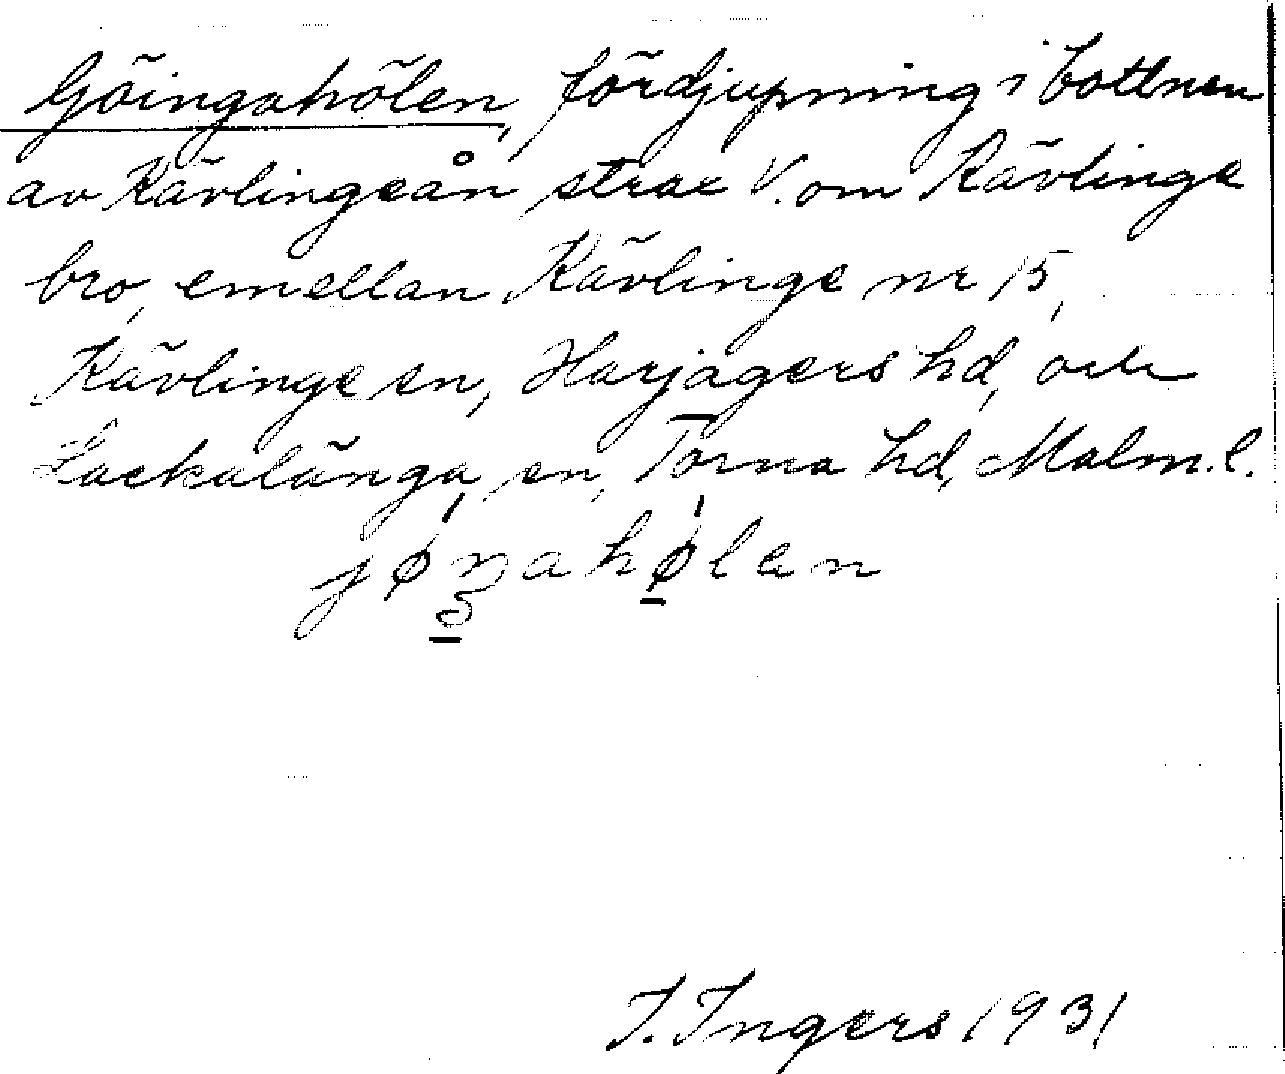 Göingahölen, fördjupning i bottnen
av Kävlingeån strax V. om Kävlinge
bro, emellan Kävlinge nr 15,
Kävlinge sn, Harjagers hd, och
Lackalänga sn, Torna hd, Malm.l.
J. Ingers 1931